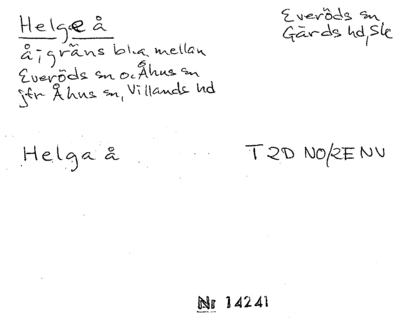 Helge å
Everöds sn
Gärds hd, Sk
å; gräns bl.a. mellan
Everöds sn o. Åhus sn
jfr Åhus sn, Villands hd
Helga å
T 2D NO/2E NV
Nr 14241